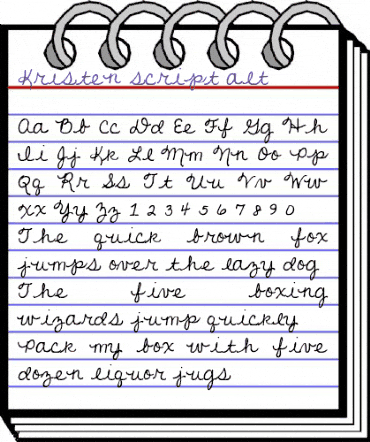 Kristen Script Alt
Aa Bb Cc Dd Ee Ff Gg Hh
Ii Jj Kk Ll Mm Nn Oo Pp
Qq Rr Ss Tt Uu Vv Ww
Xx Yy Zz 1 2 3 4 5 6 7 8 9 0
The quick brown fox
jumps over the lazy dog
The five boxing
wizards jump quickly
Pack my box with five
dozen liquor jugs